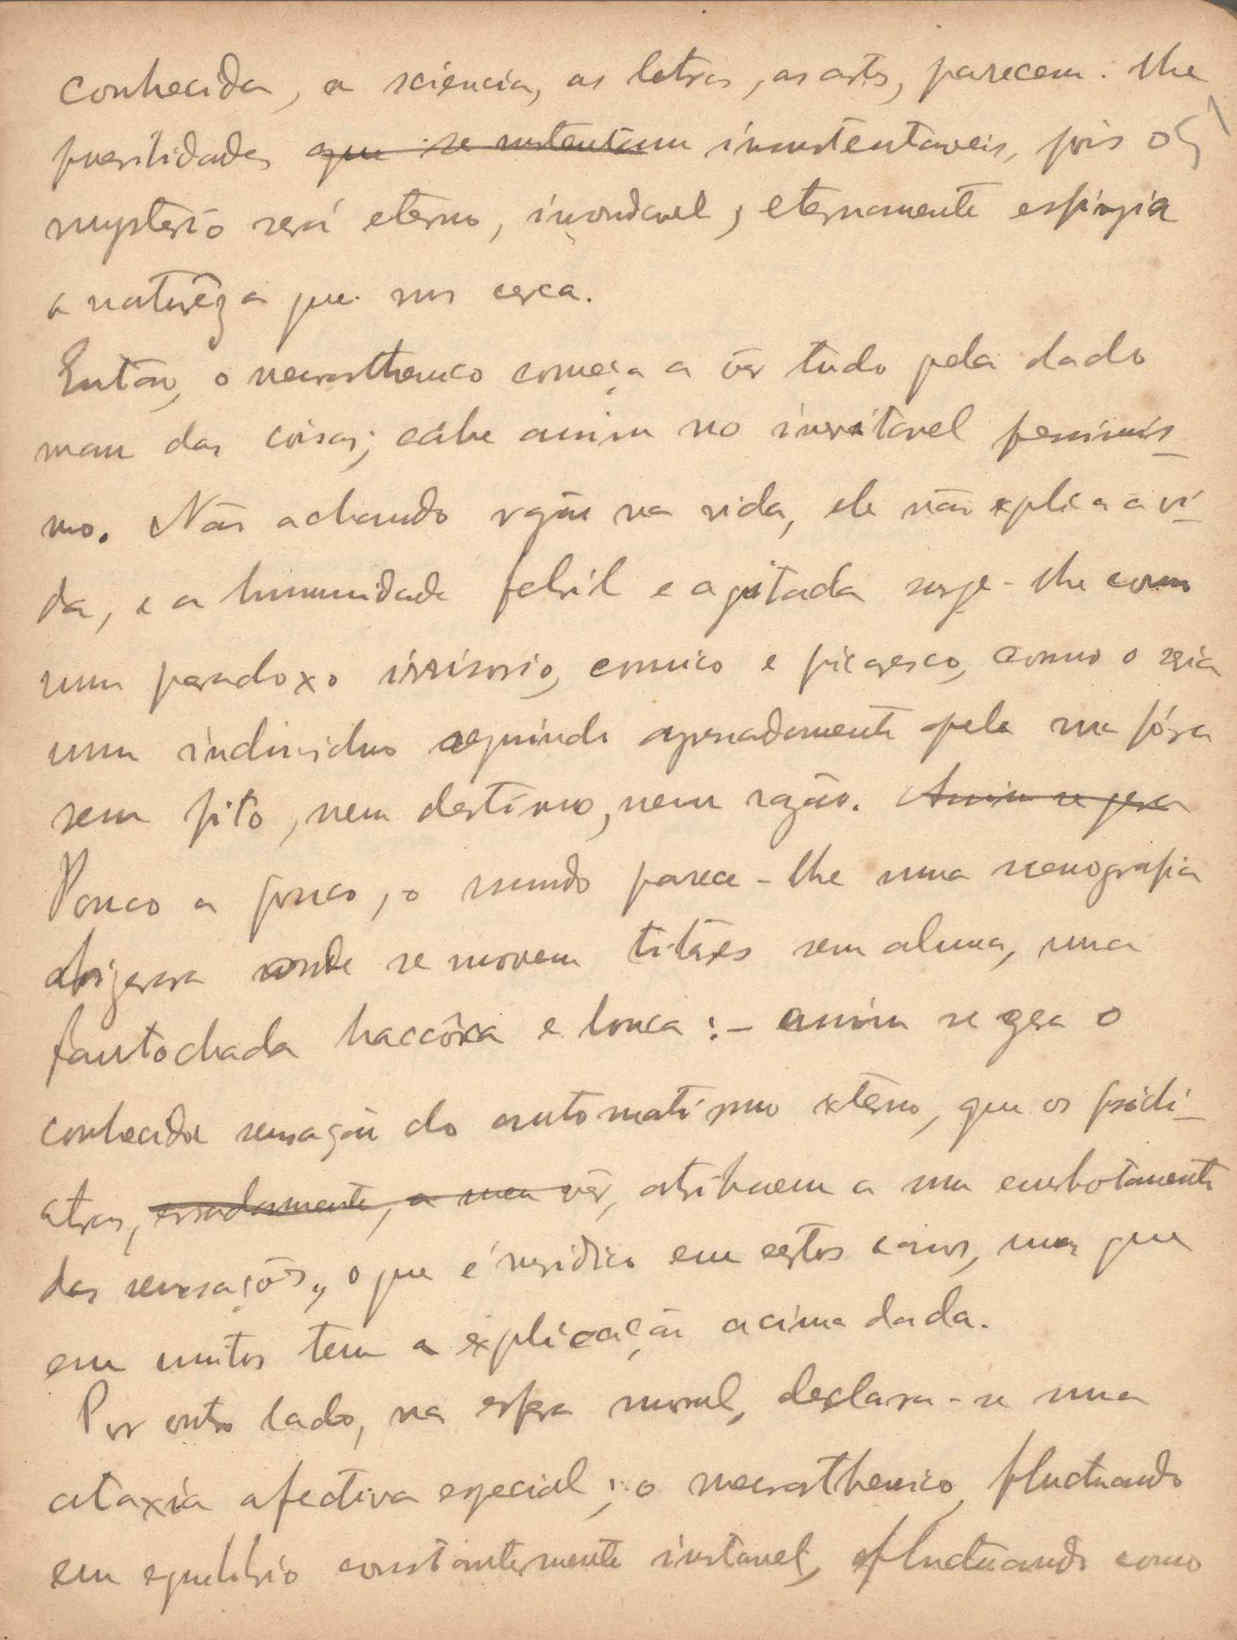 conhecida, a sciencia, as letras, as artes, parecem-lhe
puerilidades que se sustentam insustentaveis, pois o
mysterio será eterno, insondavel, eternamente esfingia
a naturêza que nos cerca.
Então, o neurasthenico começa a vêr tudo pela lado
mau das coisas; cáhe assim no inevitavel pessimis-
mo. Não achando razão na vida, ele não explica a vi-
da, e a humanidade febril e agitada surge-lhe como
um paradoxo irrisorio, comico e picaresco, como o seria
um individuo seguindo apressadamente pela rua fóra
sem fito, nem destino, nem razão. Assim se gera
Pouco a pouco, o mundo parece-lhe uma scenografia
onde se movem titéres sem alma, uma
fantochada baccôca e louca: - assim se gera o
conhecida sensação do automatismo externo, que os psichi-
atras, erradamente, a meu vêr, atribuem a um embotamento
das sensações, o que é veridico em certos casos, mas que
em muitos tem a explicação acima dada.
Por outro lado, na esfera moral, declara-se uma
ataxia afectiva especial; o neurasthenico, fluctuando
em equilibrio constantemente instavel, fluctuando como